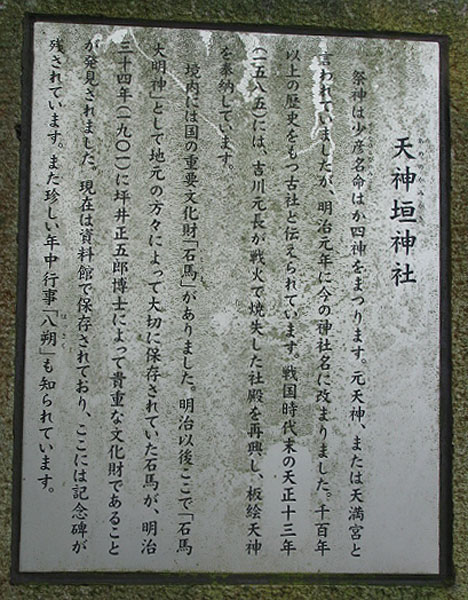 天神垣神社
祭神は少彦名命ほか四神をまつります。元天神、または天満宮と
言われていましたが、明治元年に今の神社名に改まりました。千百年
以上の歴史をもつ古社と伝えられています。戦国時代末の天正十三年
(一五八五)には、吉川元長が戦火で焼失した社殿を再興し、板絵天神
を奉納しています。
境内には国の重要文化財「石馬」がありました。明治以後ここで「石馬
大明神」として地元の方々によって大切に保存されていた石馬が、明治
三十四年(一九〇一)に坪井正五郎博士によって貴重な文化財であること
が発見されました。現在は資料館で保存されており、ここには記念碑が
残されています。また珍しい年中行事「八朔」も知られています。
はっさく